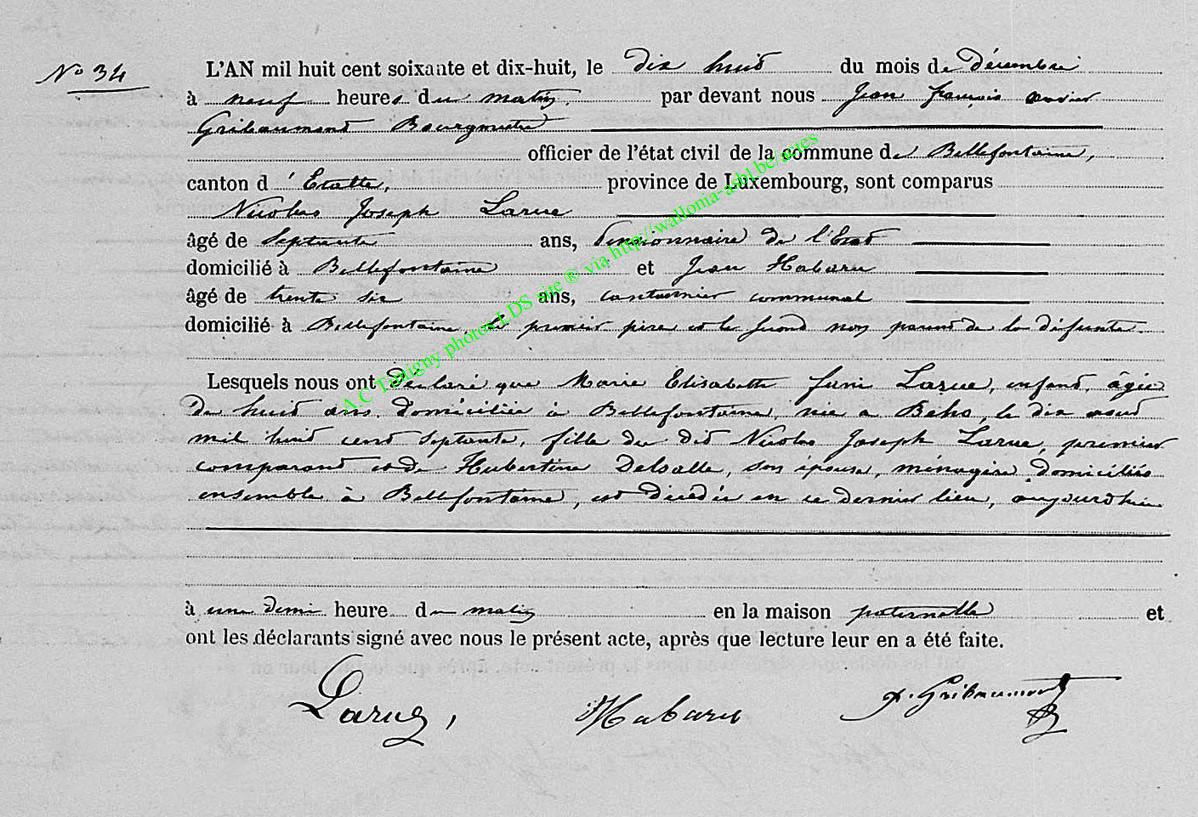 N° 34
L'AN mil huit cent soixante et dix-huit, le dix huit du mois de Décembre
à neuf heures du matin par devant nous Jean françois xavier
Gribaumont Bourgmestre
officier de l'état civil de la commune de Bellefontaine,
canton d'Etalle, province de Luxembourg, sont comparus
Nicolas Joseph Larue
âgé de septante ans, Pensionnaire de l'Etat
domicilié à Bellefontaine et Jean Habaru
âgé de trente six ans, cantonnier communal
domicilié à Bellefontaine, le premier père et le second non parent de la défunte
Lesquels nous ont Déclaré que Marie Elisabeth Larue, enfant, âgée
de huit ans domiciliée à Bellefontaine, née a Beho, le dix aout
mil huit cent septante, fille du dit Nicolas Joseph Larue, premier
comparant et de Hubertine Delsalle, son épouse, ménagère domiciliés
ensemble à Bellefontaine, est décédée en ce dernier lieu, aujourd'hui
à une demi heure du matin en la maison paternelle et
ont les déclarants signé avec nous le présent acte, après que lecture leur en a été faite.
Larue, Habaru Gribaumont
A.C Tintigny photos LDS site ® via http://wallonia-asbl.be/actes